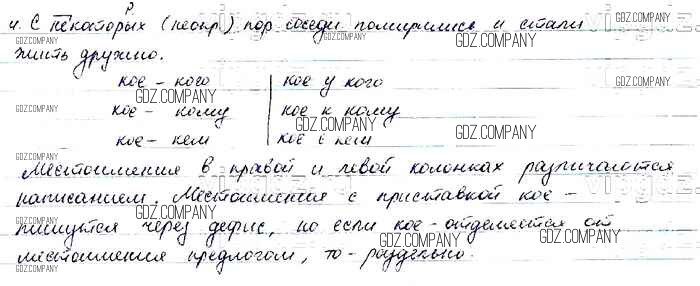 р.
4. С некоторых (неопр.) пор соседи помирились и стали
жить дружно.
кое - кого | кое у кого
кое - кому | кое к кому
кое - кем | кое с кем
Местоимения в правой и левой колонках различаются
написанием. Местоимения с приставкой кое -
пишутся через дефис, но если кое - отделяется от
местоимения предлогом, то - раздельно.
GDZ.COMPANY